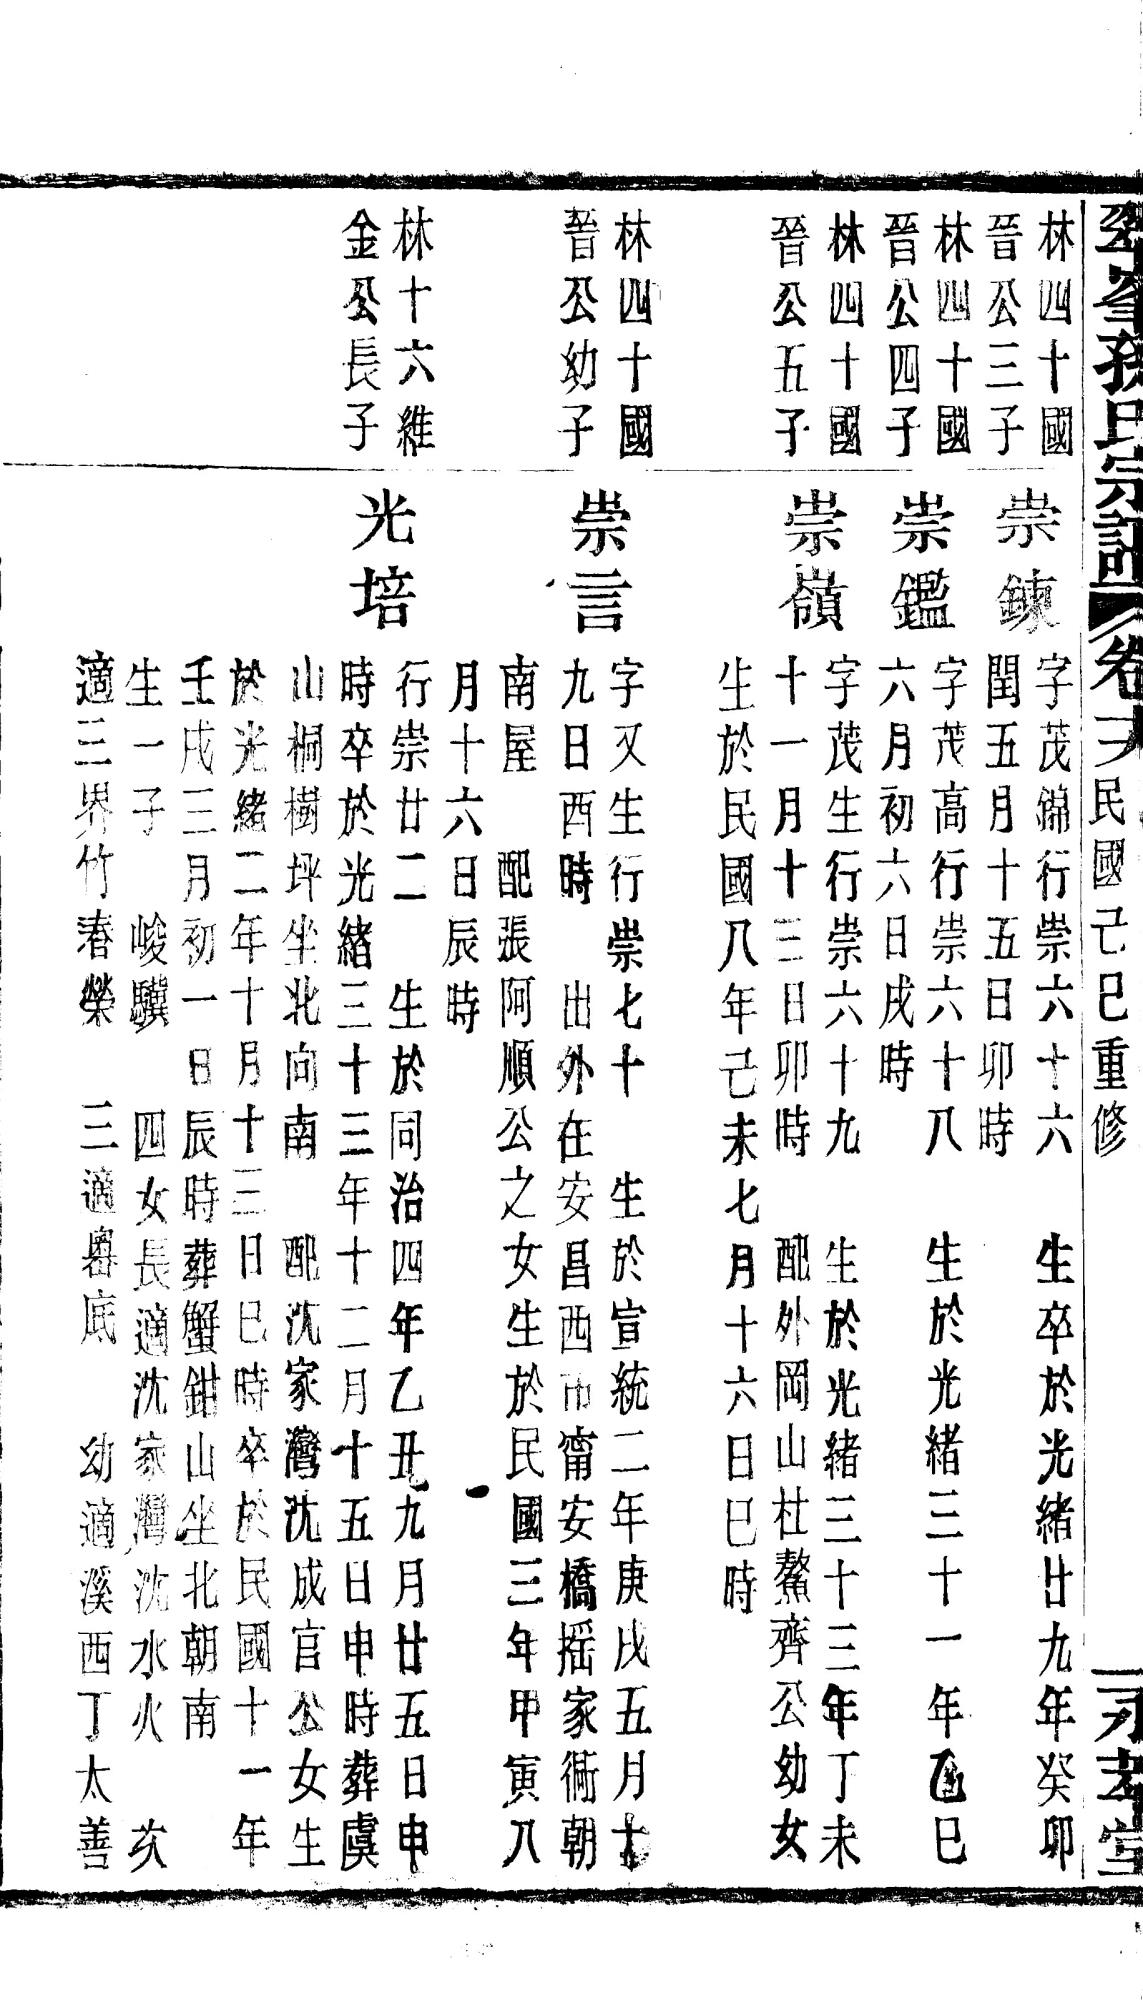 翠峯孫氏宗譜 卷 民國己巳重修 永孝堂
林四十國
晉公三子
崇鍊
字茂錦行崇六十六 生卒於光緒廿九年癸卯
閏五月十五日卯時
林四十國
晉公四子
崇鑑
字茂高行崇六十八 生於光緒三十一年乙巳
六月初六日戌時
林四十國
晉公五子
崇嶺
字茂生行崇六十九 生於光緒三十三年丁未
十一月十三日卯時 配外岡山杜鰲齊公幼女
生於民國八年己未七月十六日巳時
林四十國
晉公幼子
崇言
字又生行崇七十 生於宣統二年庚戌五月十
九日酉時 出外在安昌西市甯安橋摇家衖朝
南屋 配張阿順公之女生於民國三年甲寅八
月十六日辰時
林十六維
金公長子
光培
行崇廿二 生於同治四年乙丑九月廿五日申
時卒於光緒三十三年十二月十五日申時葬虞
山桐樹坪坐北向南 配沈家灣沈成官公女生
於光緒二年十月十三日巳時卒於民國十一年
壬戌三月初一日辰時葬蟹鉗山坐北朝南
生一子 峻驥 四女長適沈家灣沈水火 次
適三界竹春榮 三適嶴底 幼適溪西丁太善